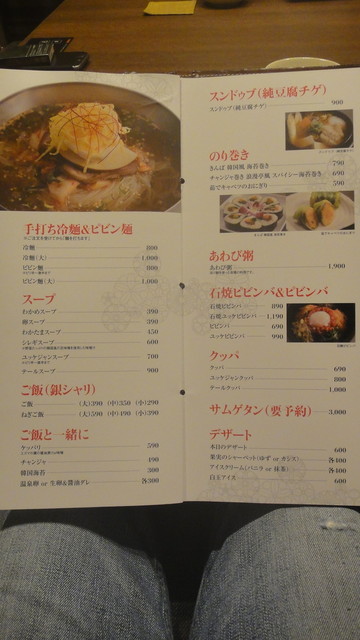 手打ち冷麺&ビビン麺
冷麺 800
冷麺(大) 1,000
ビビン麺 800
ビビン麺(大) 1,000
スープ
わかめスープ 390
卵スープ 390
わかたまスープ 450
シレギスープ 600
ユッケジャンスープ 700
テールスープ 900
ご飯(銀シャリ)
ご飯 (大)390 (中)350 (小)290
ねぎご飯 (大)590 (中)490 (小)390
ご飯と一緒に
ケッパリ 590
チャンジャ 490
韓国海苔 300
温泉卵 or 生卵&醤油ダレ 各300
スンドゥブ(純豆腐チゲ)
スンドゥブ(純豆腐チゲ) 900
のり巻き
きんぱ 韓国風 海苔巻き 790
チャンジャ巻き 浪漫亭風 スパイシー海苔巻き 690
茹でキャベツのおにぎり 590
あわび粥
あわび粥 1,900
石焼ビビンバ&ビビンバ
石焼ビビンバ 990
石焼ユッケビビンバ 1,190
ビビンバ 690
ユッケビビンバ 990
クッパ
クッパ 690
ユッケジャンクッパ 800
テールクッパ 1,000
サムゲタン(要予約) 3,000
デザート
本日のデザート 600
果実のシャーベット(ゆず or カシス) 各400
アイスクリーム(バニラ or 抹茶) 各400
白玉アイス 600